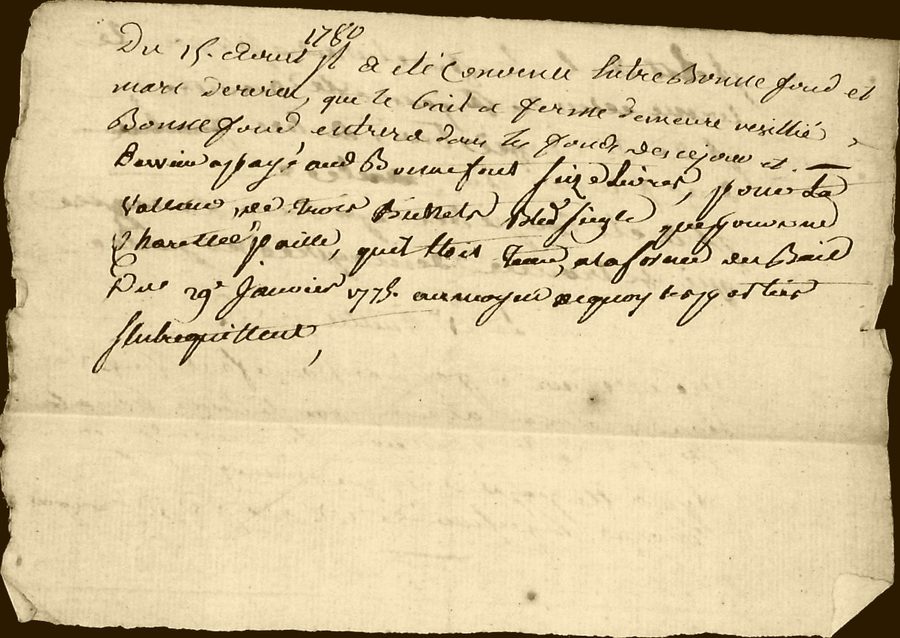 1780
Du 15. Avril Jl a eté Convenu Entre Bonnefond et
marc Dervieu, que le bail a ferme demeure resillié,
Bonnefond entrera dans les fonds des cejour et
Dervieu a payé aud Bonnefont seize livres, pour La
valleur de trois Bichets Bled siegle que pour une
Charettée paille, quil étoit tenu, a la forme du Bail
Du 29e Janvier 1775. au moyen de quoy les parties
Sentrequittent,